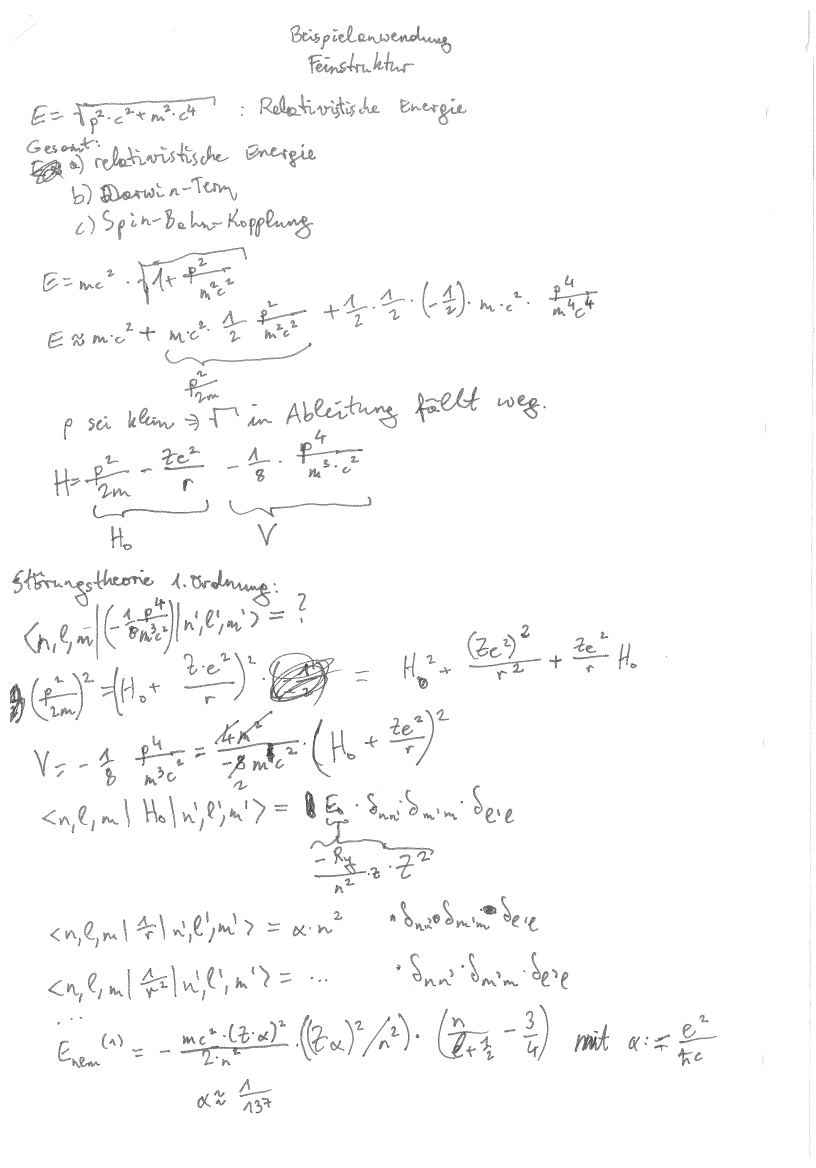 Beispielanwendung
Feinstruktur
E = √(p²·c² + m²·c⁴) : Relativistische Energie
Gesamt:
a) relativistische Energie
b) Darwin-Term
c) Spin-Bahn-Kopplung
E = mc² · √(1 + p²/(m²c²))
E ≈ m·c² + m·c² · 1/2 p²/(m²c²) + 1/2 · 1/2 · (-1/2) · m·c² · p⁴/(m⁴c⁴)
p²/2m
p sei klein ⇒ √ in Ableitung fällt weg.
H = p²/2m - Ze²/r - 1/8 · p⁴/(m³·c²)
H₀ V
Störungstheorie 1. Ordnung:
<n,l,m|(-1/8 p⁴/(m³c²))|n',l',m'> = ?
(p²/2m)² = (H₀ + Z·e²/r)² = H₀² + (Ze²)²/r² + Ze²/r H₀
V = -1/8 p⁴/(m³c²) = 4m²/(-8m³c²) · (H₀ + Ze²/r)²
2
<n,l,m|H₀|n',l',m'> = E₀ · δₙₙ' · δₘ'ₘ · δₗ'ₗ
-Ry/n² · z · Z²
<n,l,m|1/r|n',l',m'> = α·n² · δₙₙ' · δₘ'ₘ · δₗ'ₗ
<n,l,m|1/r²|n',l',m'> = ... · δₙₙ' · δₘ'ₘ · δₗ'ₗ
...
Eₙₑₘ⁽¹⁾ = - mc²·(Z·α)²/(2·n²) · ((Zα)²/n²) · (n/(l+1/2) - 3/4) mit α := e²/ħc
α ≈ 1/137